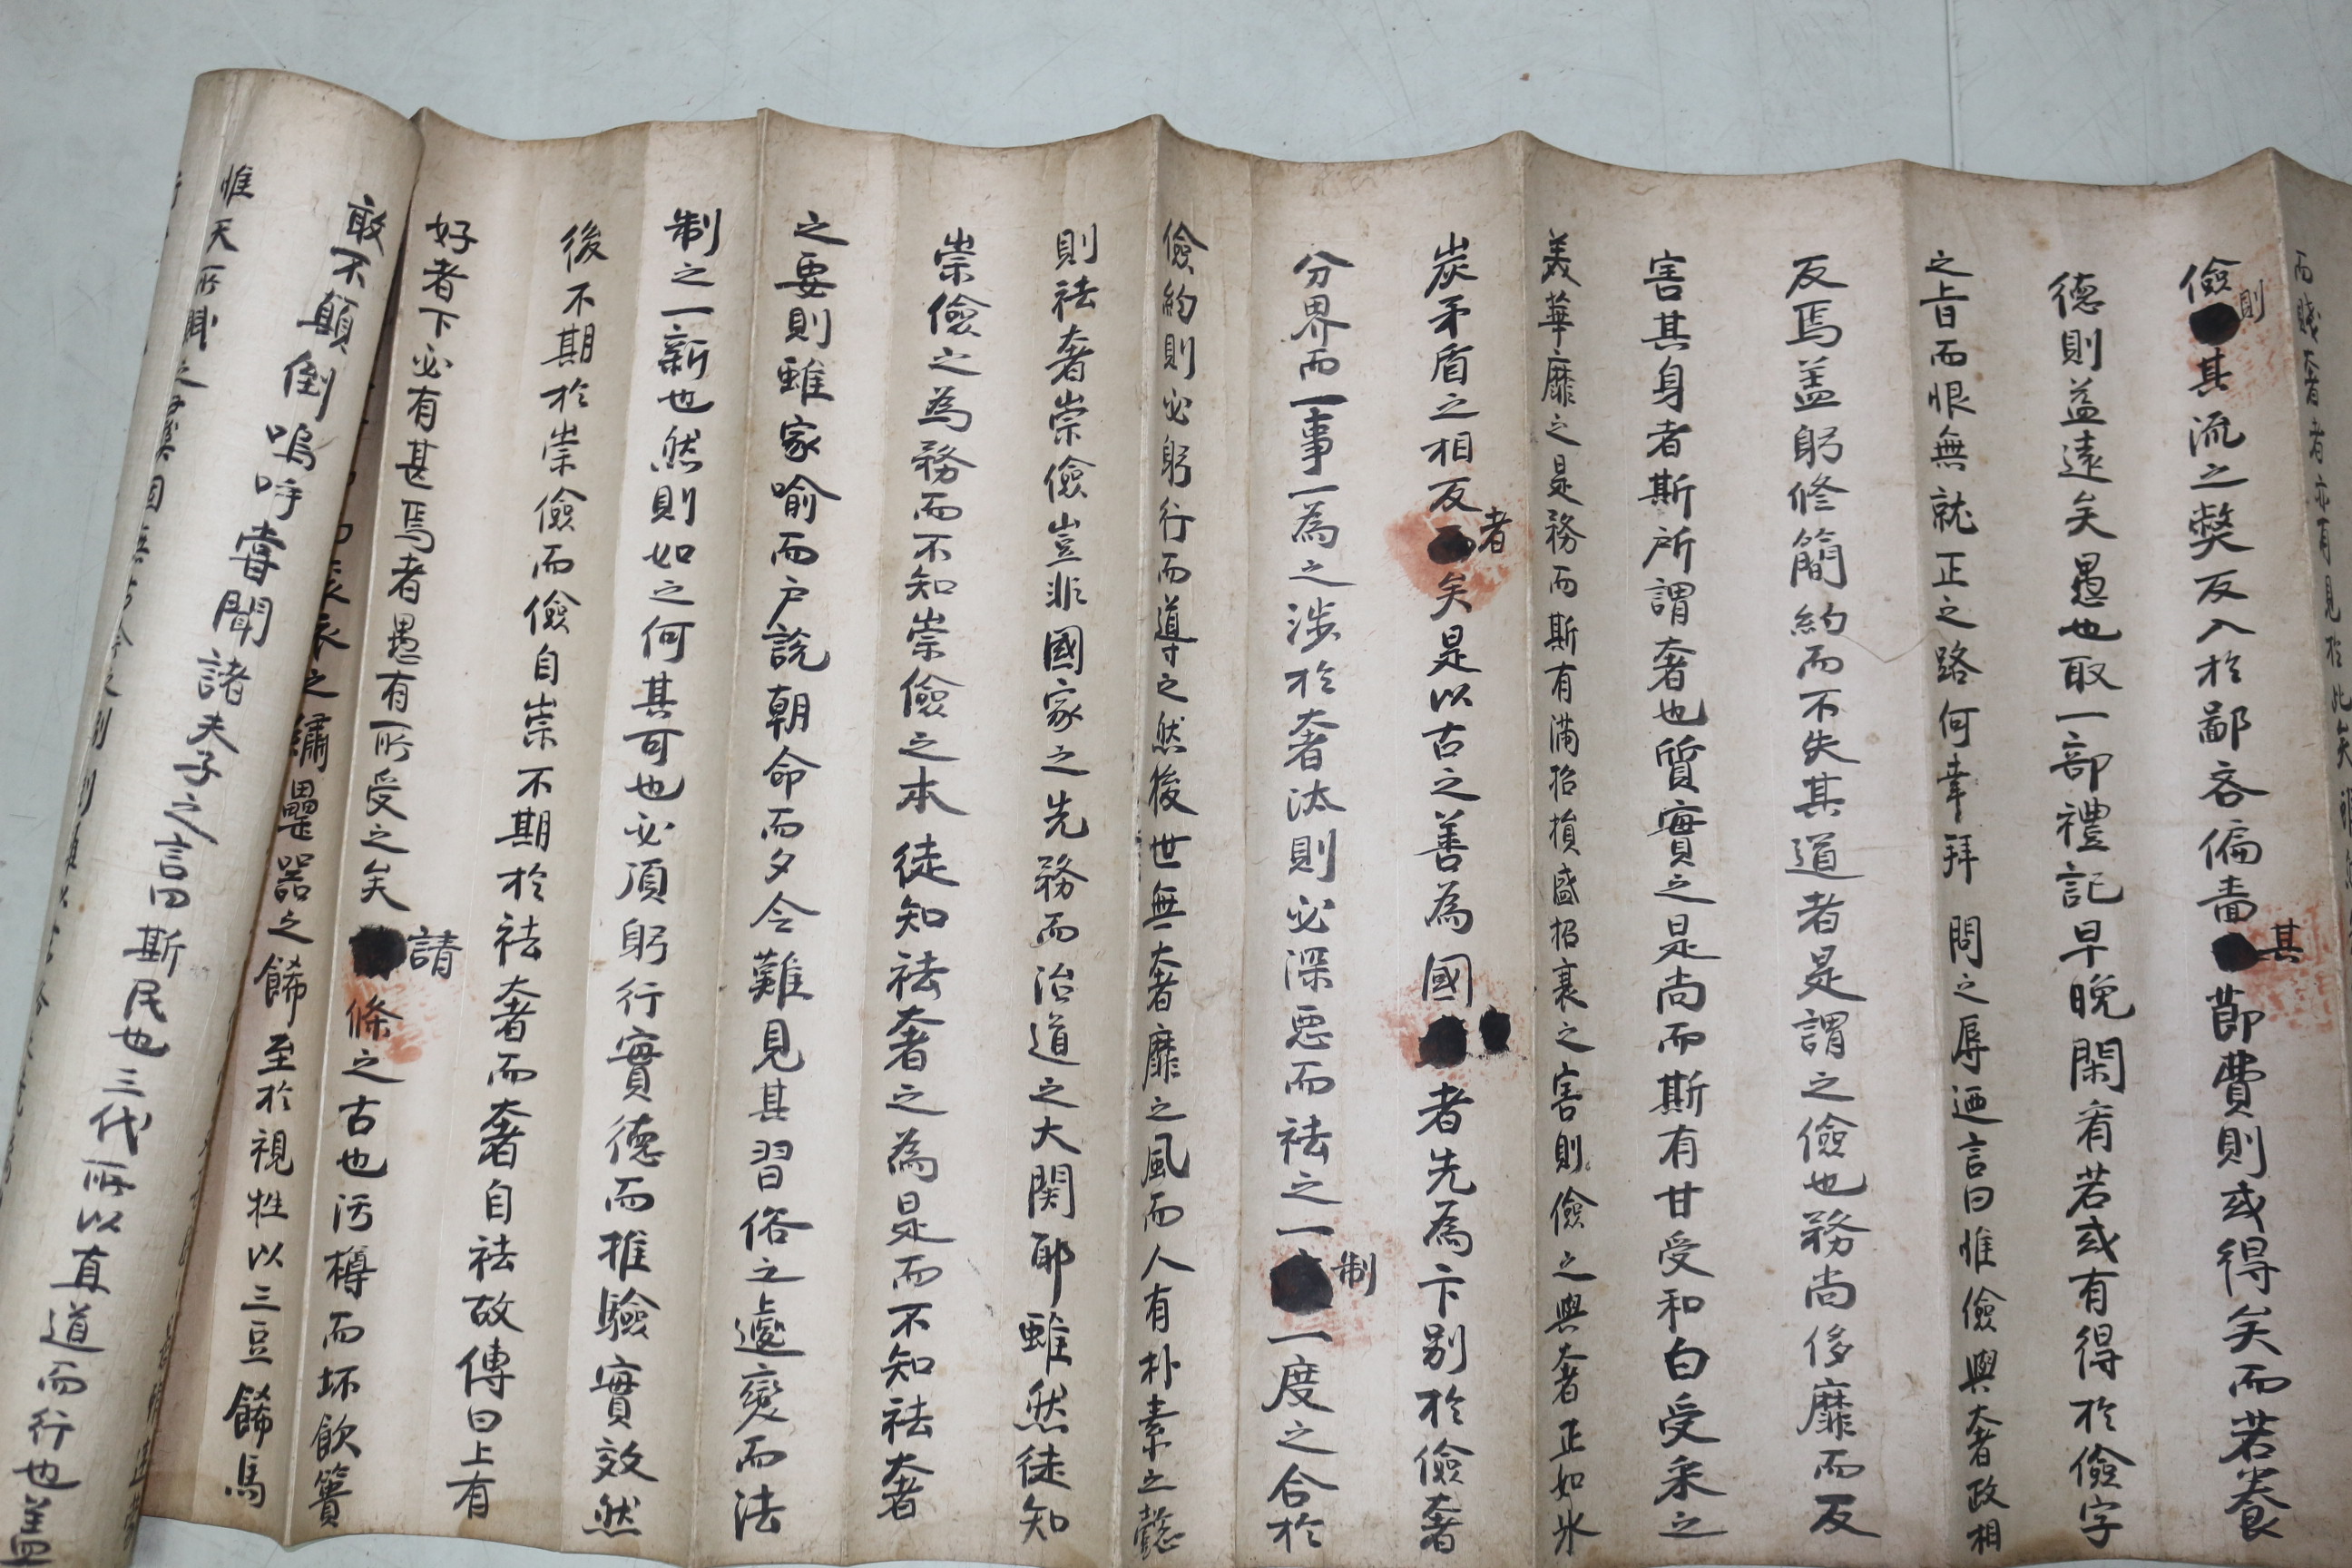 而賤奢者亦可見於此矣
儉則其流之獘反入於鄙吝偏嗇其節費則或得矣而若養
德則益遠矣愚也取一部禮記早晩閑看若或有得於儉字
之旨而恨無就正之路何幸拜問之辱迺言曰惟儉與奢政相
反焉盖躬修簡約而不失其道者是謂之儉也務尚侈靡而反
害其身者斯所謂奢也質實之是尚而斯有甘受和白受采之
美華靡之是務而斯有滿招損盛招衰之害則儉之與奢正如氷
炭矛盾之相反者矣是以古之善為國者先為卞别於儉奢
分界而一事一為之涉於奢汰則必深惡而祛之一制一度之合於
儉約則必躬行而導之然後世無奢靡之風而人有朴素之懿
則祛奢崇儉豈非國家之先務而治道之大関耶雖然徒知
崇儉之為務而不知崇儉之本徒知祛奢之為是而不知祛奢
之要則雖家喻而户說朝命而夕令難見其習俗之遽變而法
制之一新也然則如之何其可也必須躬行實德而推驗實效然
後不期於崇儉而儉自崇不期於祛奢而奢自祛故傳曰上有
好者下必有甚焉者愚有所受之矣請條之古也污樽而坏飲簣
之繡罍器之餙至於視牲以三豆餙馬
敢不顛倒嗚呼嘗聞諸夫子之言曰斯民也三代所以直道而行也
惟天所賦之